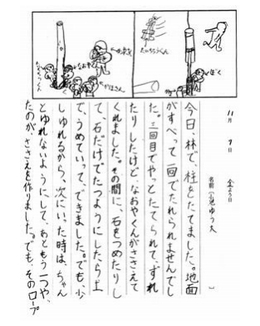 11月 9日 金よう日
名前 ゆう太
今日、林で、柱をたてました。地面
がすべって一回でたてられませんでし
た。三回目でやっとたてられて、ずれ
たりしたけどなおやくんがささえて
くれました。その間に、石をつめたりし
て、石だけでたつようにしたら、土
て、うめていって、できました。でも、少
しゆれるから、次にいた時は、ちゃん
とゆれないようにして、あともう一つや、
たのが、ささえを作りました。でも、そのロープ
ぼく